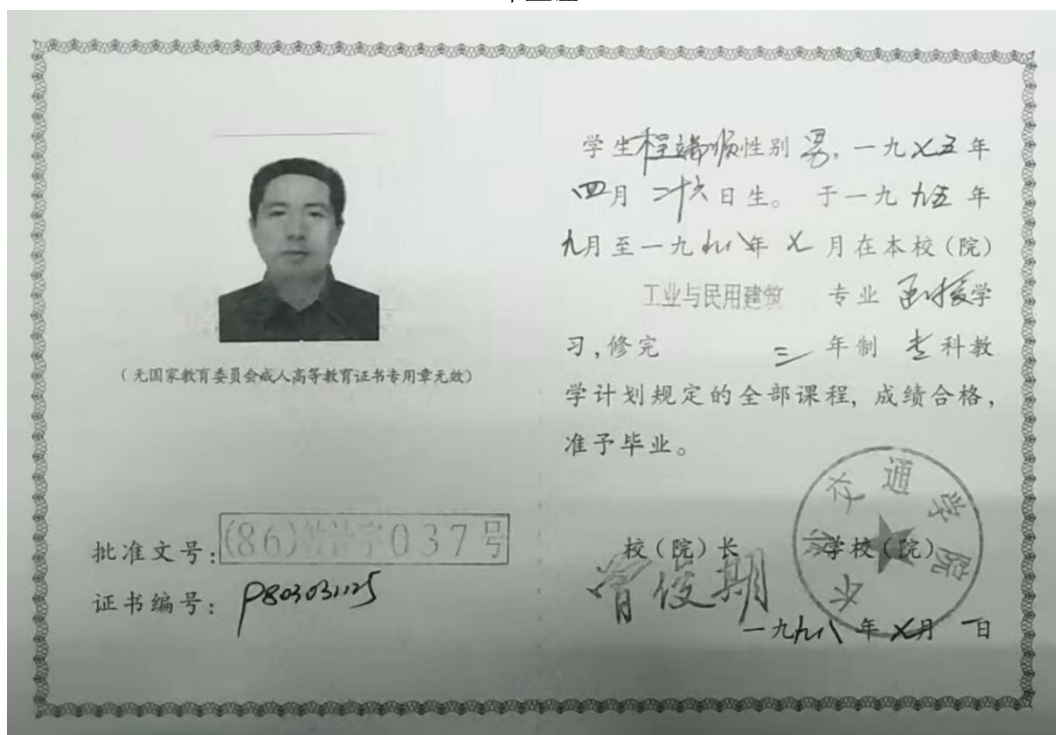 (无国家教育委员会成人高等教育证书专用章无效)
批准文号:(86)教法字037号
证书编号:P803031125
学生程瑞顺性别男,一九七五年
四月二十六日生。于一九九五年
九月至一九九八年七月在本校(院)
工业与民用建筑 专业函授学
习,修完 三年制专科教
学计划规定的全部课程,成绩合格,
准予毕业。
校(院)长 学校(院)
曾俊期
交通学院
一九九八年七月一日